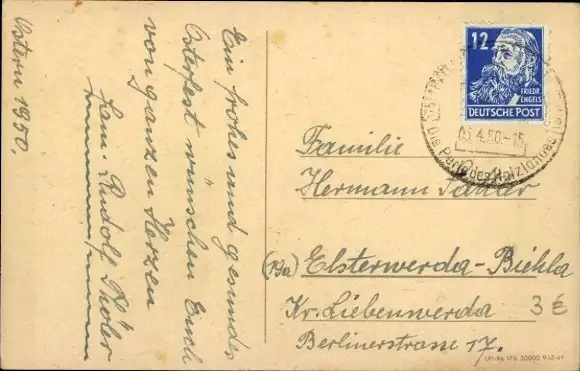 Ostern 1950.
Ein frohes und gesundes
Osterfest wünschen Euch
von ganzen Herzen
Fam. Rudolf Thöler
12
FRIEDR.
ENGELS
DEUTSCHE POST
4.50.-15
Die Perle des Holzlandes
Familie
Hermann
(19a) Elsterwerda-Biehla
Kr. Liebenwerda
Berlinerstrasse 17.
3 €